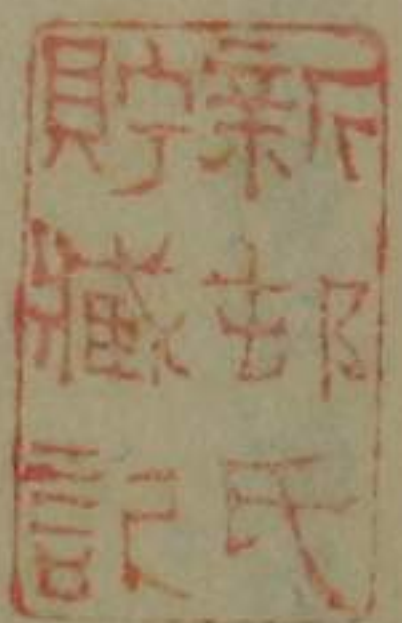 新邨氏
貯藏記